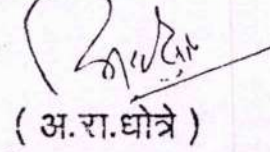 ( अ.रा.धोत्रे )